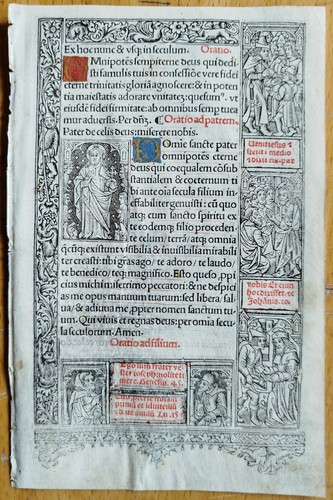 Ex hoc nunc & vsq; in seculum. Oratio.
OMnipotēs sempiterne deus qui dedi
sti famulis tuis in confessiōe vere fidei
eterne trinitatis gloriā agnoscere: & in po
tentia maiestatis adorare vnitatē: quesum⁹. vt
eiusdē fidei firmitate: ab omnibus semp tuea
mur aduersis. Per dn̄z. Oratio ad patrem.
Pater de celis deus: miserere nobis.
DOmie sancte pater
omnipotēs eterne
deus qui coequalem cōsub
stantialem & coeternum ti
bi ante oīa secula filium inef
fabiliter genuisti: cū quo
atq; cum sancto spiritu ex
te eodemq; filio proceden
te celum / terrā / atq; omnia
q̄cūq; existunt visibilia & inuisibilia mirabili
ter creasti: tibi gr̄as ago / te adoro / te laudo /
te benedico / teq; magnifico. Esto queso ,ppi
cius michi misserrimo peccatori: & ne despici
as me opus manuum tuarum: sed libera / sal
ua / & adiuua me ,ppter nomen sanctum tu
um. Qui viuis et regnas deus: per omīa secu
la seculorum. Amen.
Oratio ad filium.
stetit i medio
nobis Et cum
hoc dixisset. &c
Johānis. 20.
Ego sum frater ve
ster ioseph: nolite ti
mere. Genesis. 45.